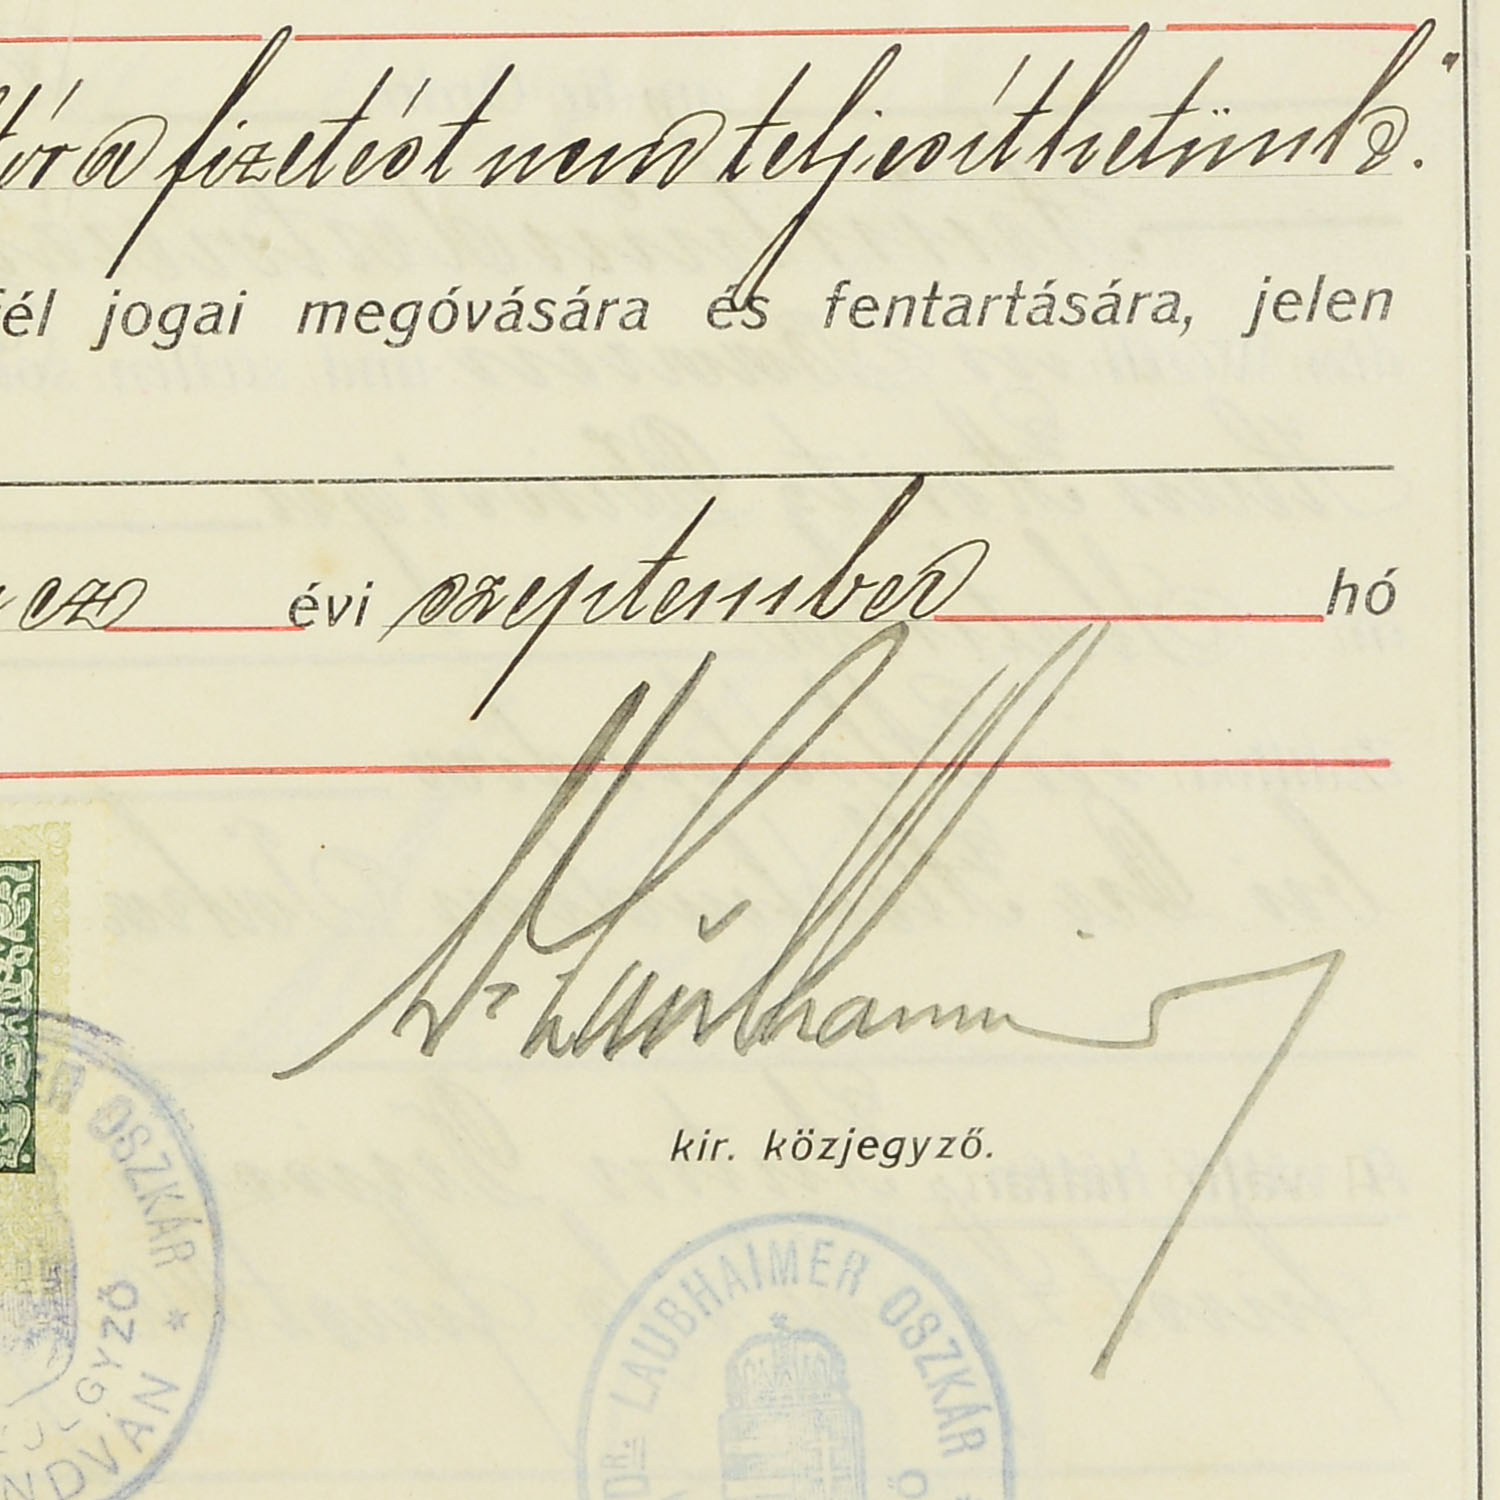 a fizetést nem teljesíthetjük."
fél jogai megóvására és fentartására, jelen
ez évi szeptember hó
Dr Laubhaimer
kir. közjegyző.
OSZKÁR *
GYZŐ
NDVÁN
DR. LAUBHAIMER OSZKÁR *